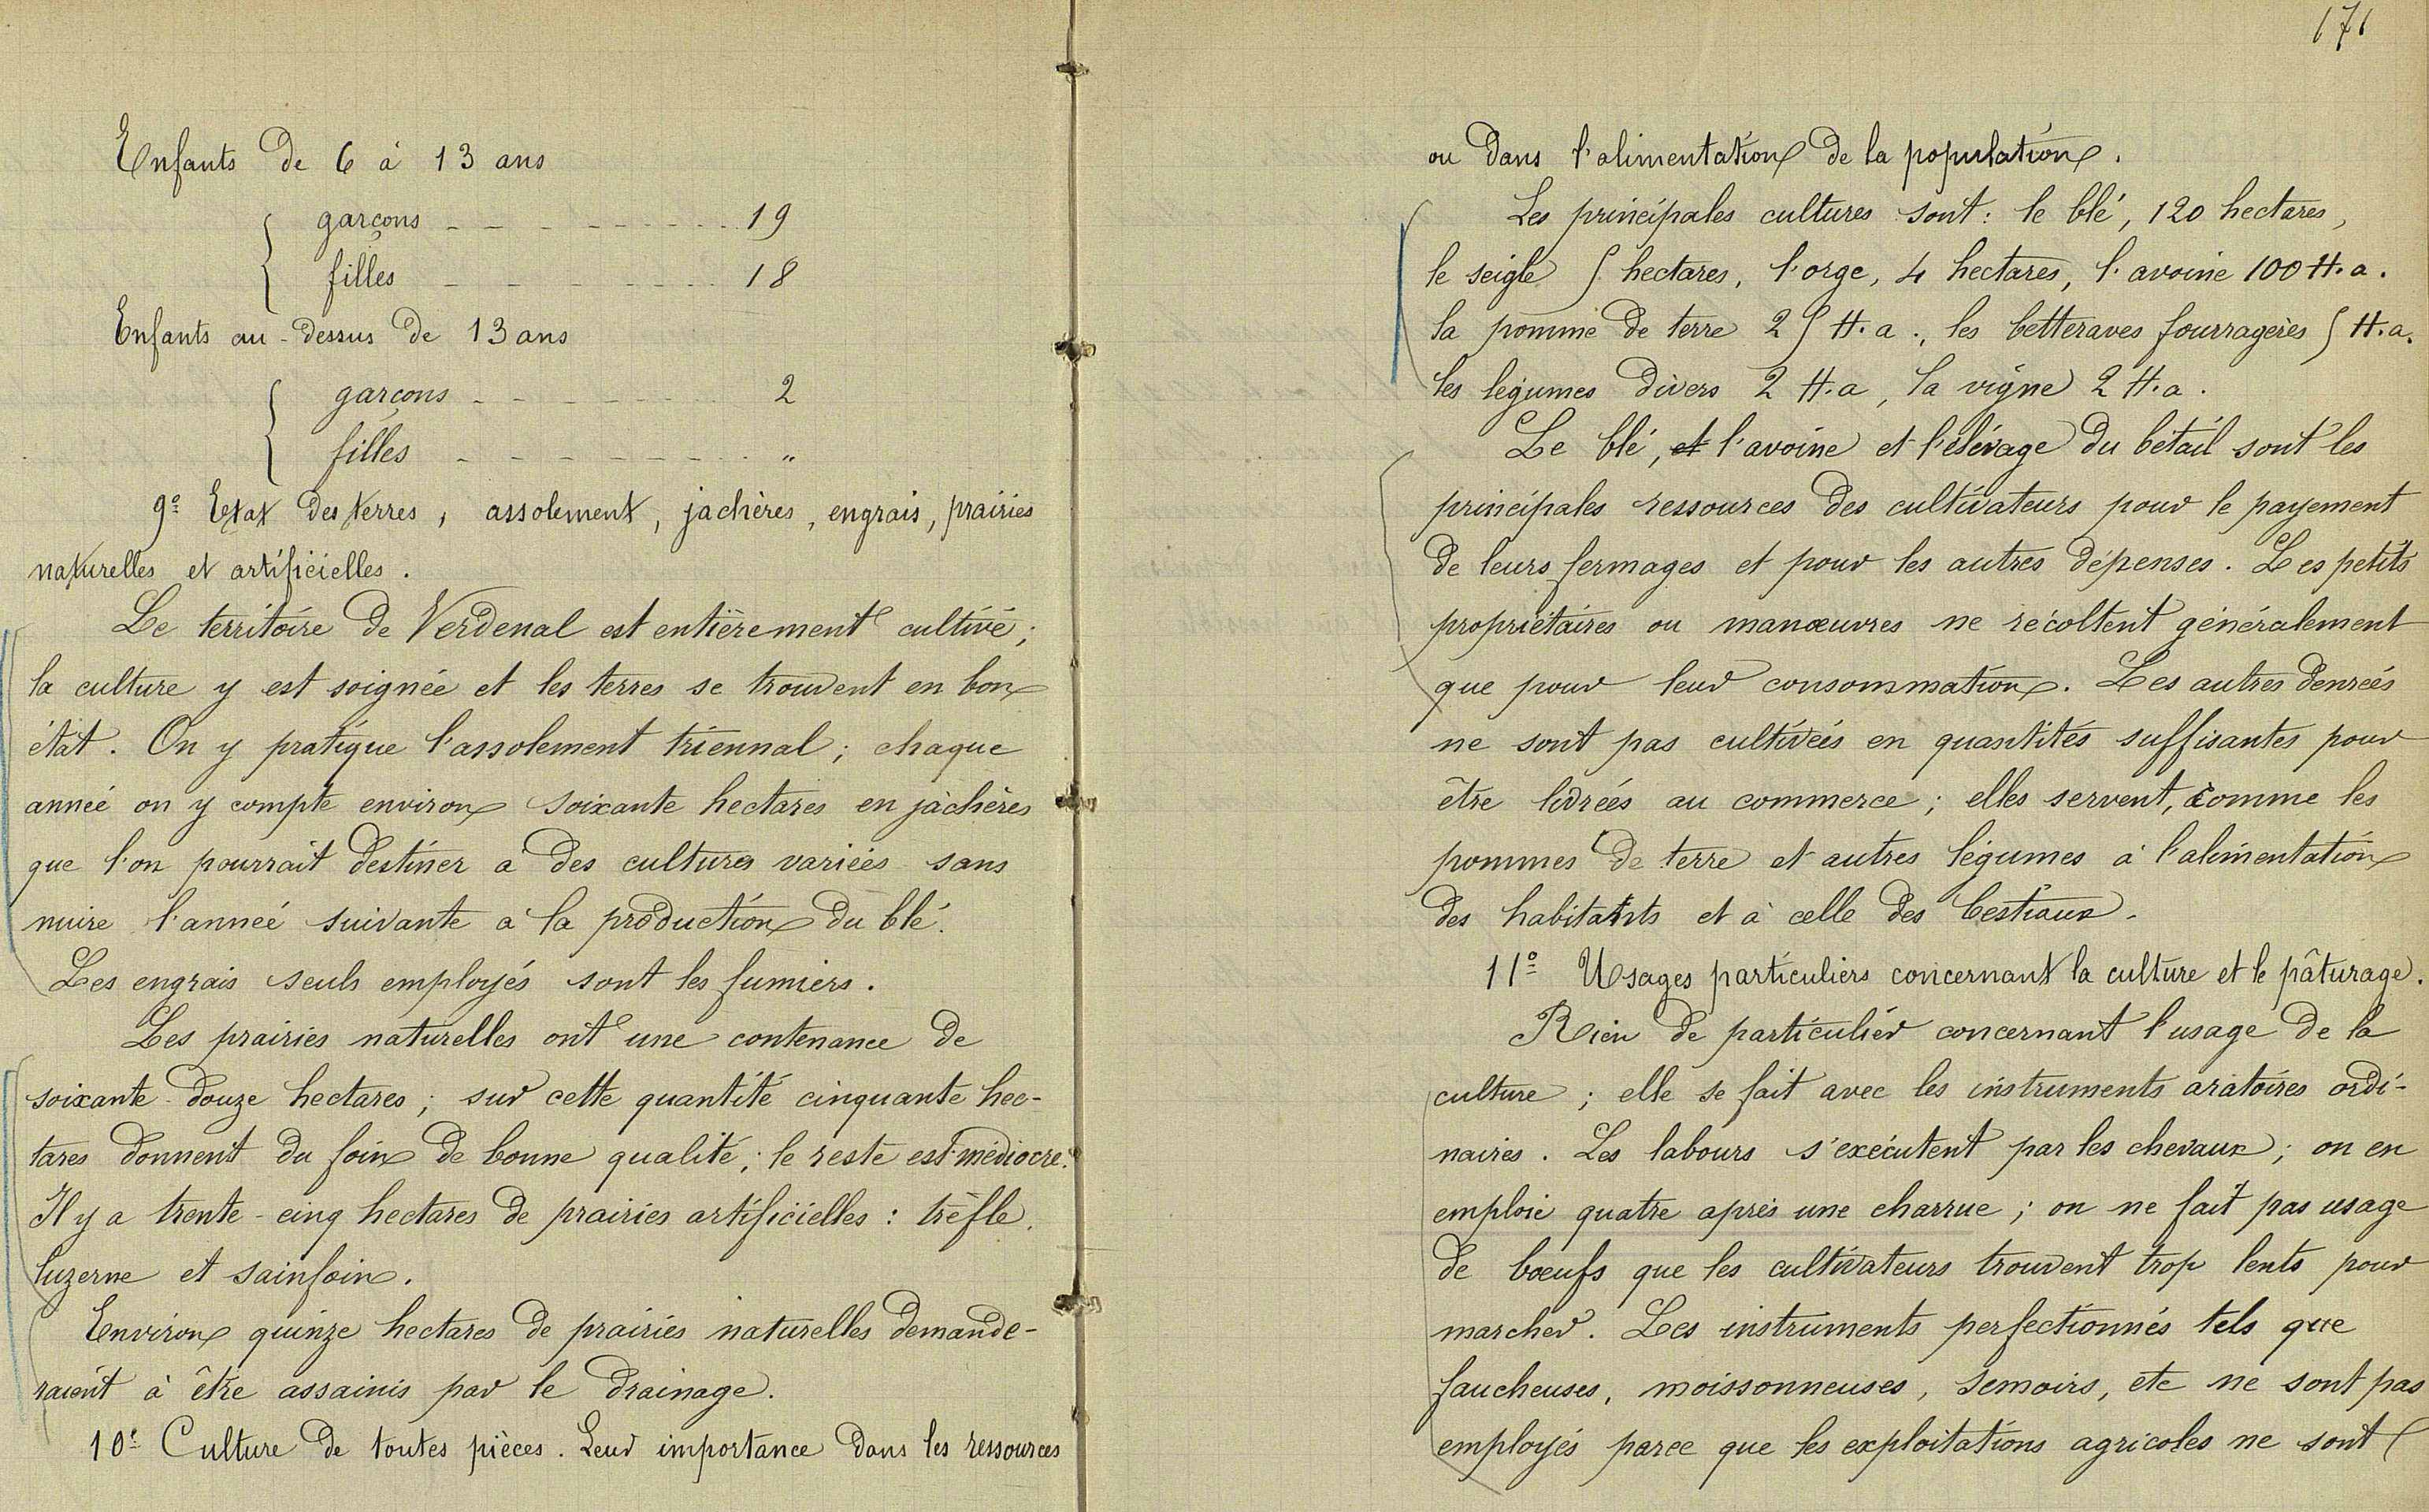 Enfants de 6 à 13 ans
garçons - - - - - - - - - 19
filles - - - - - - - - - 18
Enfants au-dessus de 13 ans
garçons - - - - - - - 2
filles - - - - - - - - - "
9º Etat des terres, assolement, jachères, engrais, prairies
naturelles et artificielles.
Le territoire de Verdenal est entièrement cultivé ;
la culture y est soignée et les terres se trouvent en bon
état. On y pratique l'assolement triennal ; chaque
année on y compte environ soixante hectares en jachères
que l'on pourrait destiner à des cultures variées sans
nuire l'année suivante à la production du blé.
Les engrais seuls employés sont les fumiers.
Les prairies naturelles ont une contenance de
soixante-douze hectares ; sur cette quantité cinquante hec-
tares donnent du foin de bonne qualité ; le reste est médiocre.
Il y a trente-cinq hectares de prairies artificielles : trèfle,
luzerne et sainfoin.
Environ quinze hectares de prairies naturelles demande-
raient à être assainis par le drainage.
10º Culture de toutes pièces. Leur importance dans les ressources
171
ou dans l'alimentation de la population.
Les principales cultures sont : le blé, 120 hectares,
le seigle 5 hectares, l'orge, 4 hectares, l'avoine 100 H.a.
la pomme de terre 25 H.a., les betteraves fourragères 5 H.a.
les légumes divers 2 H.a, la vigne 2 H.a.
Le blé, et l'avoine et l'élevage du bétail sont les
principales ressources des cultivateurs pour le payement
de leurs fermages et pour les autres dépenses. Les petits
propriétaires ou manœuvres ne récoltent généralement
que pour leur consommation. Les autres denrées
ne sont pas cultivées en quantités suffisantes pour
être livrées au commerce ; elles servent, comme les
pommes de terre et autres légumes à l'alimentation
des habitants et à celle des bestiaux.
11º Usages particuliers concernant la culture et le pâturage.
Rien de particulier concernant l'usage de la
culture ; elle se fait avec les instruments aratoires ordi-
naires. Les labours s'exécutent par les chevaux ; on en
emploie quatre après une charrue ; on ne fait pas usage
de bœufs que les cultivateurs trouvent trop lents pour
marcher. Les instruments perfectionnés tels que
faucheuses, moissonneuses, semoirs, etc ne sont pas
employés parce que les exploitations agricoles ne sont